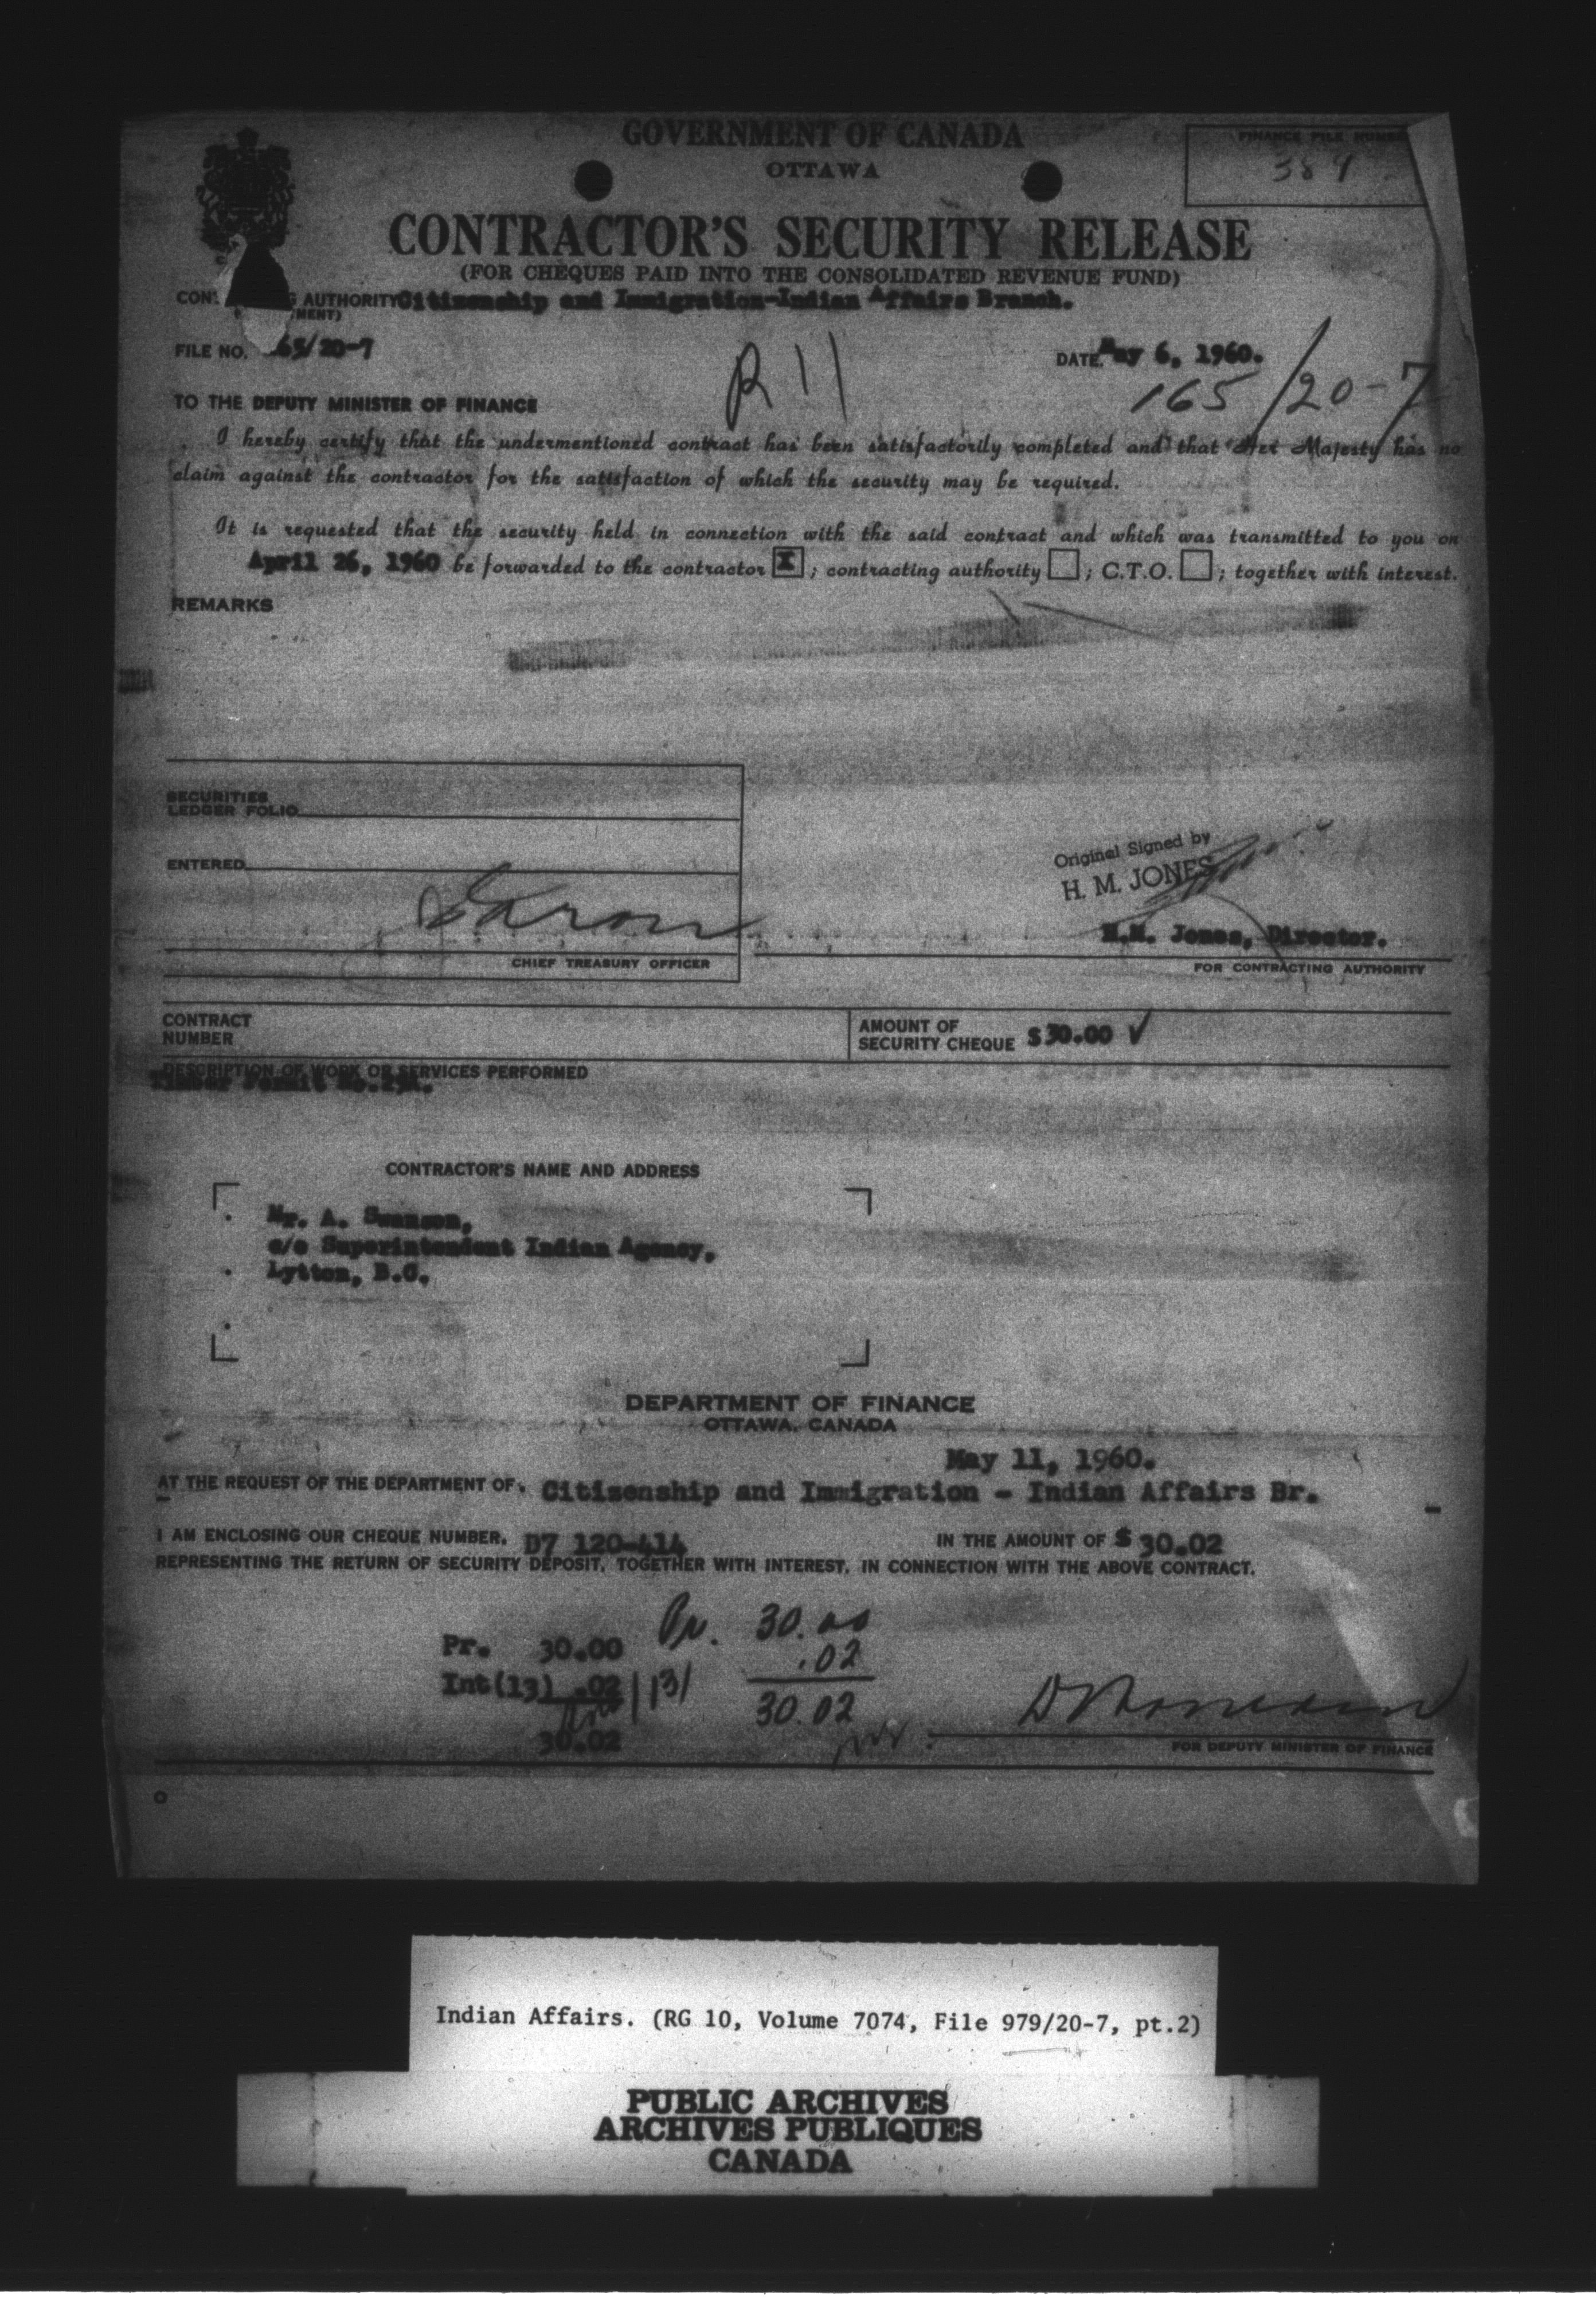 GOVERNMENT OF CANADA
OTTAWA
FINANCE FILE NUMBE
389
CONTRACTOR'S SECURITY RELEASE
(FOR CHEQUES PAID INTO THE CONSOLIDATED REVENUE FUND)
CON G AUTHORITY Citizenship and Immigration-Indian Affairs Branch.
MENT)
FILE NO. 65/20-7
R 11
DATE May 6, 1960.
165/20-7
TO THE DEPUTY MINISTER OF FINANCE
I hereby certify that the undermentioned contract has been satisfactorily completed and that Her Majesty has no
claim against the contractor for the satisfaction of which the security may be required.
It is requested that the security held in connection with the said contract and which was transmitted to you on
April 26, 1960 be forwarded to the contractor X ; contracting authority ; C.T.O. ; together with interest.
REMARKS
SECURITIES
LEDGER FOLIO
ENTERED
Original Signed by
H. M. JONES
H.M. Jones, Director.
CHIEF TREASURY OFFICER
FOR CONTRACTING AUTHORITY
CONTRACT
NUMBER
AMOUNT OF
SECURITY CHEQUE $30.00 ✓
DESCRIPTION OF WORK OR SERVICES PERFORMED
Timber Permit No.
CONTRACTOR'S NAME AND ADDRESS
Mr. A. Swanson,
c/o Superintendent Indian Agency,
Lytton, B.C.
DEPARTMENT OF FINANCE
OTTAWA, CANADA
May 11, 1960.
AT THE REQUEST OF THE DEPARTMENT OF: Citizenship and Immigration - Indian Affairs Br.
I AM ENCLOSING OUR CHEQUE NUMBER. D7 120-414 IN THE AMOUNT OF $ 30.02
REPRESENTING THE RETURN OF SECURITY DEPOSIT, TOGETHER WITH INTEREST, IN CONNECTION WITH THE ABOVE CONTRACT.
Pr. 30.00 Pr. 30.00
Int(13) .02 /13/ .02
30.02 30.02
FOR DEPUTY MINISTER OF FINANCE
Indian Affairs. (RG 10, Volume 7074, File 979/20-7, pt.2)
PUBLIC ARCHIVES
ARCHIVES PUBLIQUES
CANADA